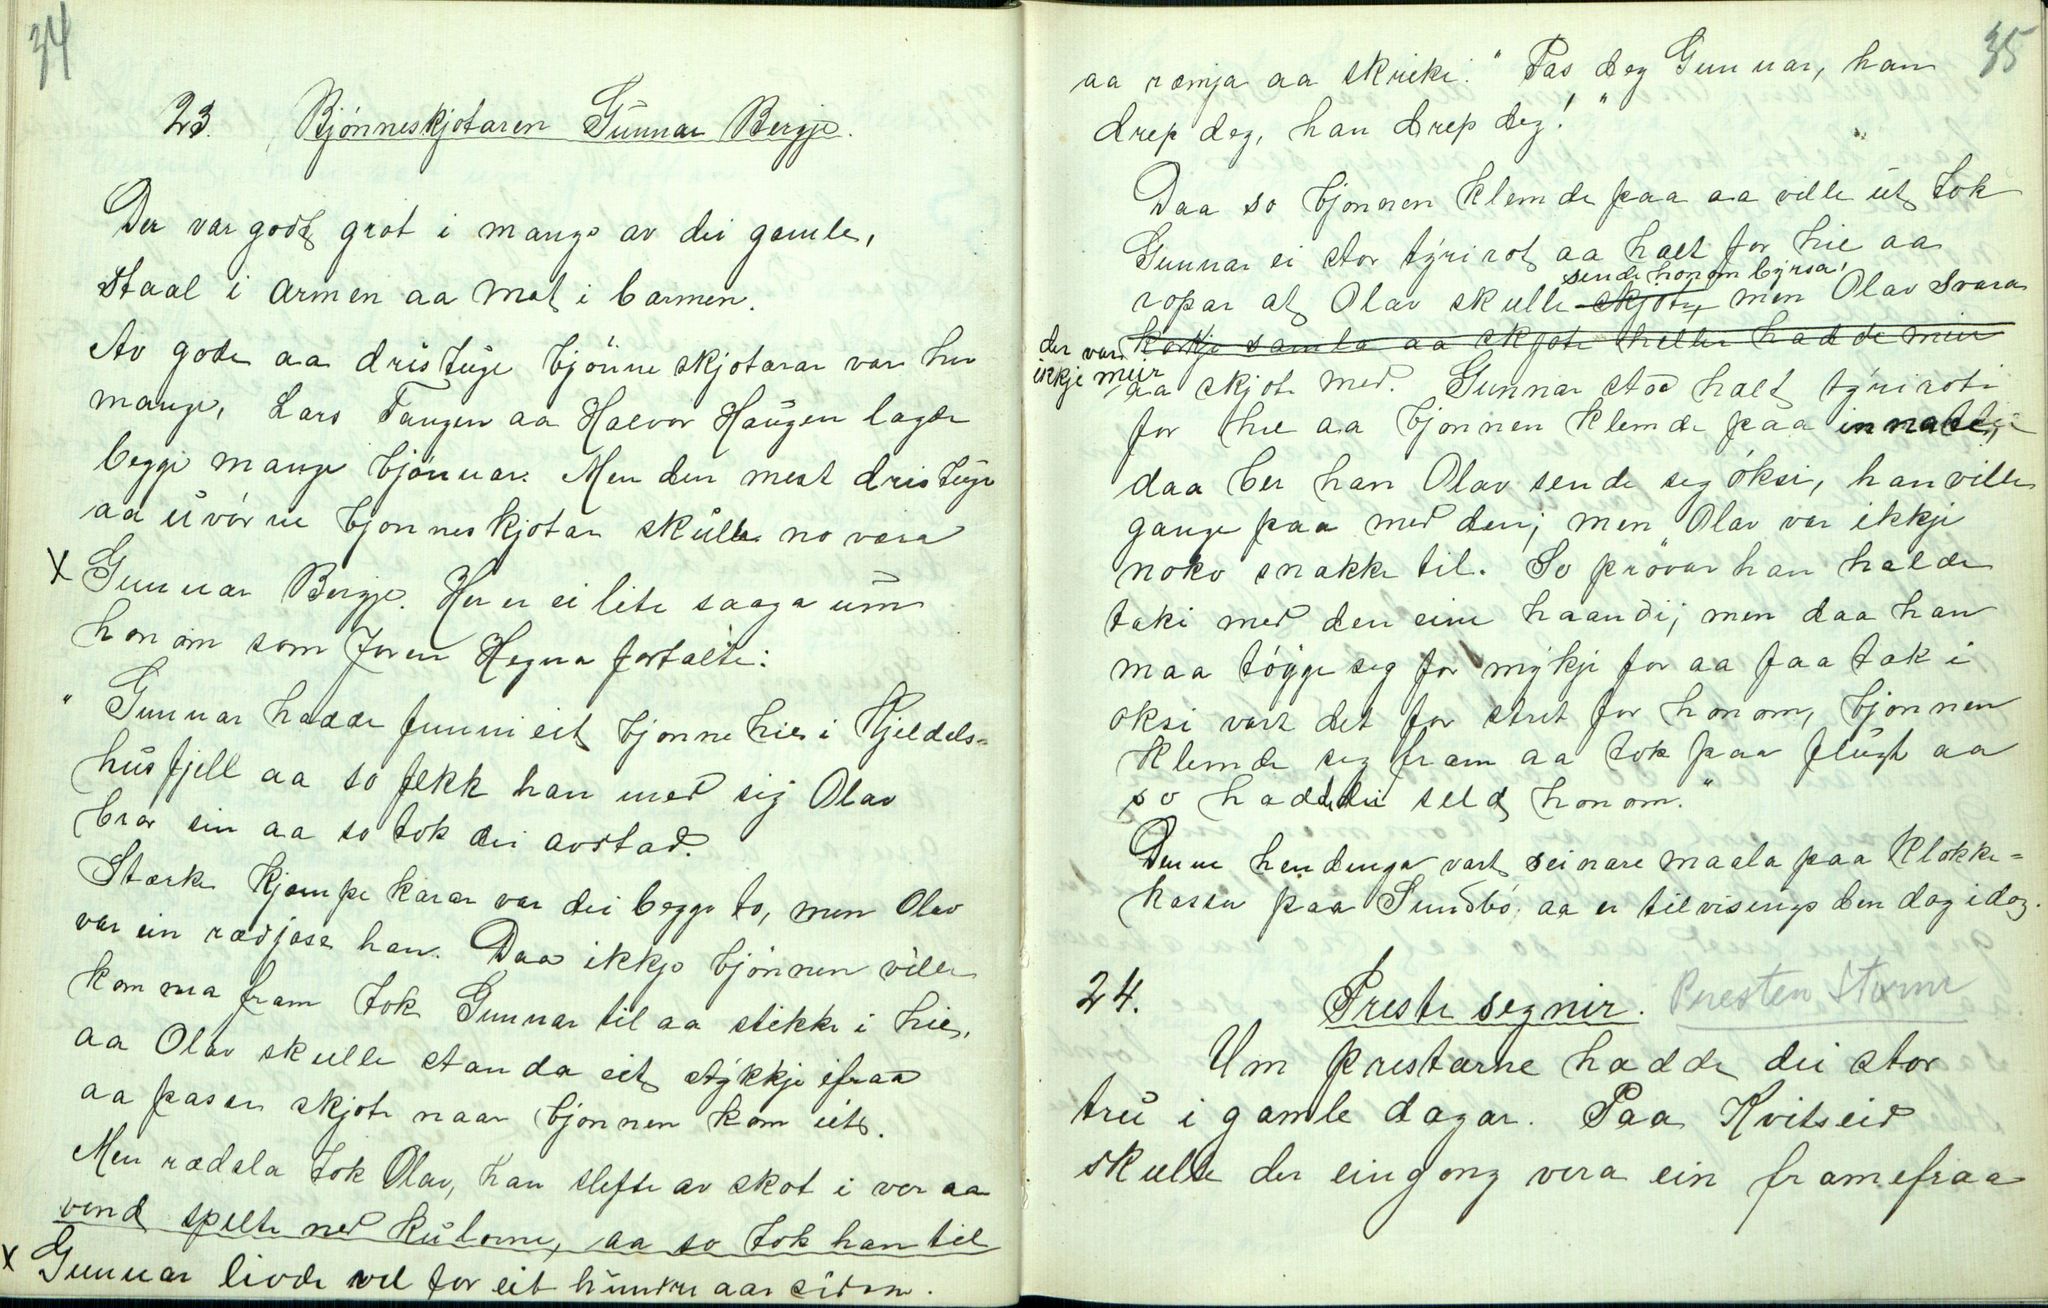 34
23. Bjønneskjotaren Gunnar Bergje.
Der var godt grot i mange av dei gamle,
staal i armen aa mot i barmen.
Av gode aa dristuge bjønneskjotarar var her
mange, Lars Tangen aa Halvor Haugen lagde
begge mange bjønnar. Men den mest dristuge
aa uvørne bjonneskjotar skulle no vera
X Gunnar Bergje. Her er ei lite saaga um
honom som Joren Hegna fortalte:
" Gunnar hadde funni eit bjonnehie i Kjeldals-
husfjell aa so fekk han med sig Olav
bror sin aa so tok dei avstad.
Stærke kjempekarar var dei begge to, men Olav
var ein rædjase han. Daa ikkje bjønnen ville
komma fram tok Gunnar til aa stikke i hie,
aa Olav skulle standa eit stykkje ifraa
aa passe skjote naar bjonnen kom ut.
Men rædsla tok Olav, han slefte av skot i ver aa
vend spelte ned kulorne, aa so tok han til
X Gunnar livde vel for eit hundre aar sidan.
35
aa ræmja aa skrieke. "Pas deg Gunnar, han
drep deg, han drep deg!"
Daa so bjonnen klemde paa aa ville ut tok
Gunnar ei stor tyrirot aa helt for hie aa
sende honom byrsa,
ropar at Olav skulle skjote, men Olav svara
der var korkje samla aa skjote heller hadde meir
ikkje meir
aa skjote med. Gunnar stod halt tyriroti
for hie aa bjonnen klemde paa innate,
daa ber han Olav sende seg øksi, han ville
gange paa med den; men Olav var ikkje
noko snakke til. So prøvar han halde
taki med den eine haandi; men daa han
maa tøyge seg for mykje for aa faa tak i
oksi vart det for stret for honom, bjonnen
klemde seg fram aa tok paa flugt aa
so hadde dei seld honom."
Denne hendinga vart seinare maala paa klokke-
kassa paa Sundbø, aa er tilvisings den dag idag.
24. Preste segnir. Presten Storm
Um prestarne hadde dei stor
tru i gamle dagar. Paa Kvitseid
skulle der eingong vera ein framefraa